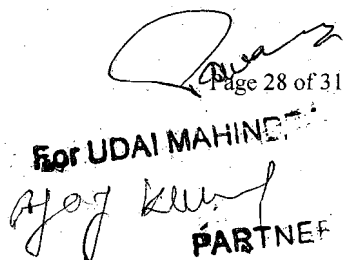 Page 28 of 31
For UDAI MAHIND
Ajay Kumar
PARTNER